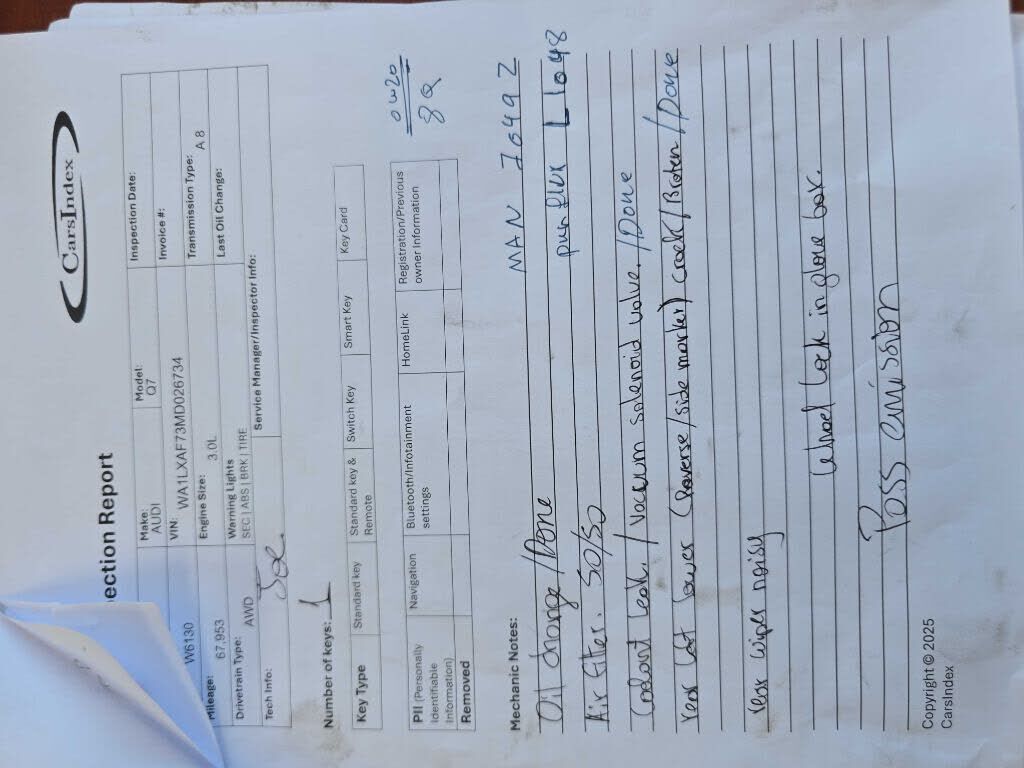 CarsIndex
ection Report
Make:
AUDI
Model:
Q7
Inspection Date:
W6130
VIN:
WA1LXAF73MD026734
Invoice #:
Mileage:
67,953
Engine Size:
3.0L
Transmission Type:
A 8
Drivetrain Type:
AWD
Warning Lights
SEC | ABS | BRK | TIRE
Last Oil Change:
Tech Info:
Joe
Service Manager/Inspector Info:
Number of keys: 1
Key Type
Standard key
Standard key & Remote
Switch Key
Smart Key
Key Card
0w20
8Q
PII (Personally Identifiable Information) Removed
Navigation
Bluetooth/Infotainment settings
HomeLink
Registration/Previous owner Information
Mechanic Notes:
MAN 7049 Z
Oil change /Done
purflux L1048
Air filter. 50/50
Coolant leak. / Vacuum solenoid valve. /Done
rear left lower (reverse/side marker) crack/Broken /Done
rear wiper noisy
Wheel Lock in glove box.
Pass emission
Copyright © 2025
CarsIndex